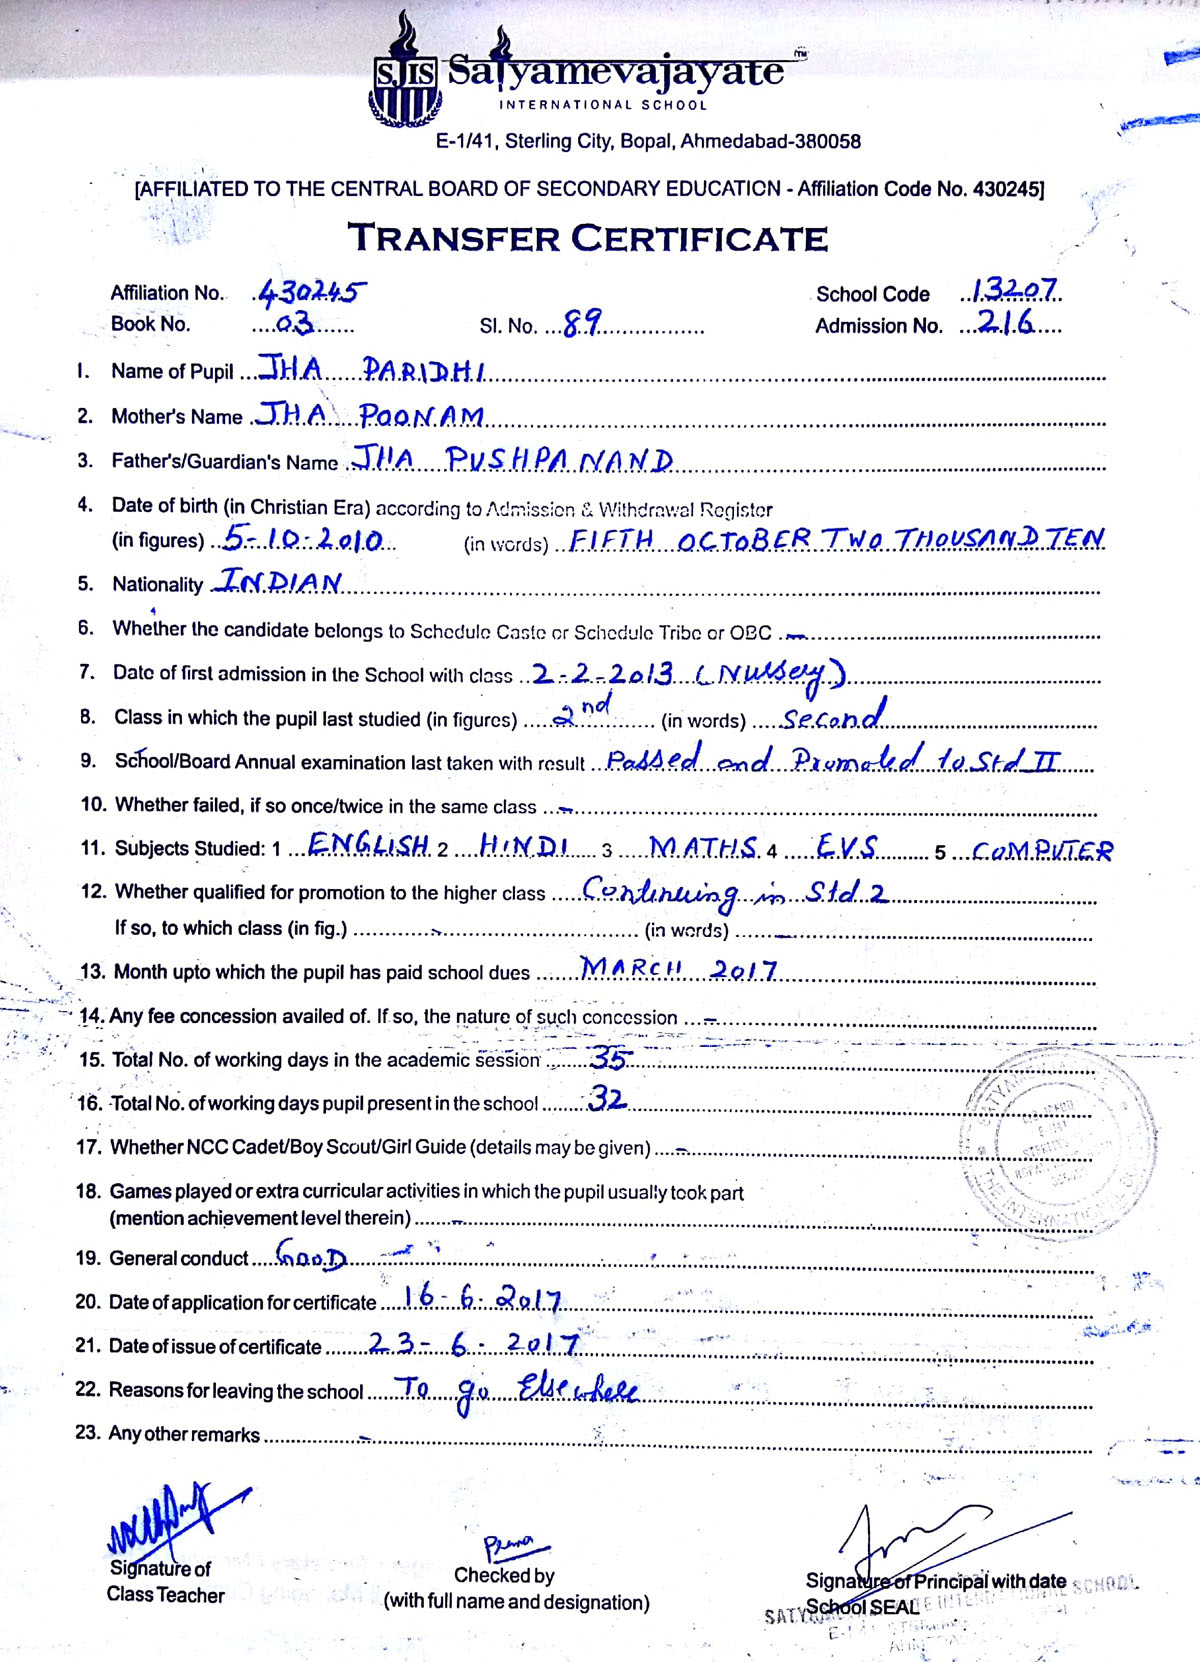 SJIS Satyamevajayate ™
INTERNATIONAL SCHOOL
E-1/41, Sterling City, Bopal, Ahmedabad-380058
[AFFILIATED TO THE CENTRAL BOARD OF SECONDARY EDUCATION - Affiliation Code No. 430245]
TRANSFER CERTIFICATE
Affiliation No. 430245 School Code 13207
Book No. 03 Sl. No. 89 Admission No. 216
1. Name of Pupil JHA PARIDHI
2. Mother's Name JHA POONAM
3. Father's/Guardian's Name JHA PUSHPANAND
4. Date of birth (in Christian Era) according to Admission & Withdrawal Register
(in figures) 5-10-2010 (in words) FIFTH OCTOBER TWO THOUSAND TEN
5. Nationality INDIAN
6. Whether the candidate belongs to Schedule Caste or Schedule Tribe or OBC -
7. Date of first admission in the School with class 2-2-2013 (Nursery)
8. Class in which the pupil last studied (in figures) 2nd (in words) Second
9. School/Board Annual examination last taken with result Passed and Promoted to Std II
10. Whether failed, if so once/twice in the same class -
11. Subjects Studied: 1 ENGLISH 2 HINDI 3 MATHS 4 EVS 5 COMPUTER
12. Whether qualified for promotion to the higher class Continuing in Std 2
If so, to which class (in fig.) - (in words) -
13. Month upto which the pupil has paid school dues MARCH 2017
14. Any fee concession availed of. If so, the nature of such concession -
15. Total No. of working days in the academic session 35
16. Total No. of working days pupil present in the school 32
17. Whether NCC Cadet/Boy Scout/Girl Guide (details may be given) -
18. Games played or extra curricular activities in which the pupil usually took part
(mention achievement level therein) -
19. General conduct GOOD
20. Date of application for certificate 16-6-2017
21. Date of issue of certificate 23-6-2017
22. Reasons for leaving the school To go Elsewhere
23. Any other remarks -
Signature of
Class Teacher
Prema
Checked by
(with full name and designation)
Signature of Principal with date
School SEAL